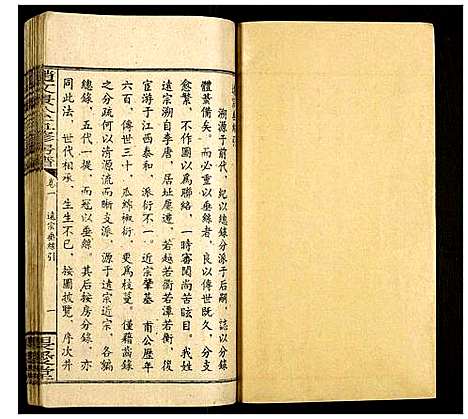 遠宗垂絲引
溯源于前代紀以遠錄分派于后嗣誌以分錄
體葢備矣而必重以垂絲者良以傳世既久分支
愈繁不作圖以爲聯絡一時審閱尚苦眩目我姓
遠宗溯自李唐居址屢遷若越若衢若潭若衡後
宦游于江西泰和派衍不一近宗肇基甫公歷年
六百傳世三十瓜綿椒衍更爲枝蔓僅藉齒錄
之分爲能以清源流而晰支派源于遠宗定例
總錄五代一提而冠以垂絲其后按房分錄亦
同此法世代相承生生不已按圖披覽序次井
卷一
遠宗垂絲引
一